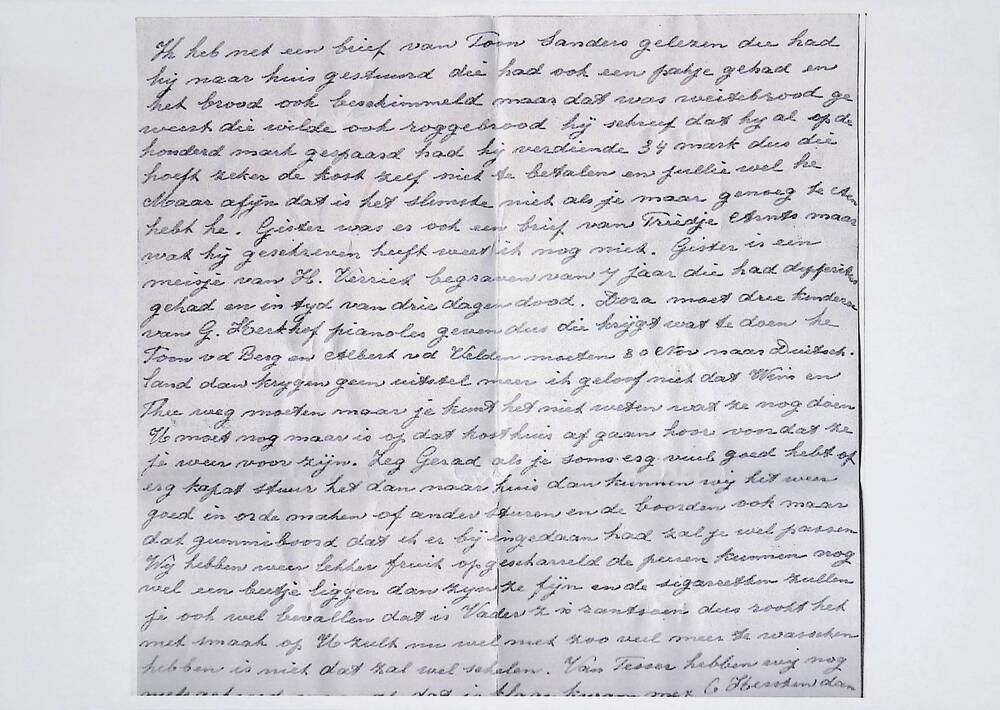 Ik heb net een brief van Toon Sanders gelezen die had
hij naar huis gestuurd die had ook een pakje gehad en
het brood ook beschimmeld maar dat was weitebrood ge
weest die wilde ook roggebrood hij schreef dat hy al op de
honderd mark gespaard had hij verdiende 34 mark dus die
hoeft zeker de kost zelf niet te betalen en jullie wel he
Maar afijn dat is het slimste niet als je maar genoeg te eten
hebt he. Gister was er ook een brief van Friedje Arnts maar
wat hij geschreven heeft weet ik nog niet. Gister is een
meisje van H. Verriet begraven van 7 jaar die had dyfferites
gehad en in tyd van drie dagen dood. Dora moet drie kinderen
van G. Herkhof pianoles geven dus die krijgt wat te doen he
Toon vd Berg en Albert vd Velden moeten 30 Nov naar Duitsch-
land dan krygen geen uitstel meer ik geloof niet dat Wim en
Thee weg moeten maar je kunt het niet weten wat ze nog doen
U moet nog maar is op dat kosthuis af gaan hoor vondat ze
je weer voor zijn. Zeg Gerad als je soms erg vuul goed hebt of
erg kapot stuur het dan naar huis dan kunnen wij hit weer
goed in orde maken of ander sturen en de boorden ook maar
dat gummiboord dat ik er bij ingedaan had zal je wel passen
Wij hebben weer lekker fruit opgescharreld de peeren kunnen nog
wel een beetje liggen dan zyn ze fijn en de sigaretten zullen
je ook wel bevallen dat is Vader z'n rantsoen dus rookt het
met smaak op U zult nu wel niet zoo veel meer te wasschen
hebben is niet dat zal wel schelen. Van Tesser hebben wij nog
dat is kwam met dan